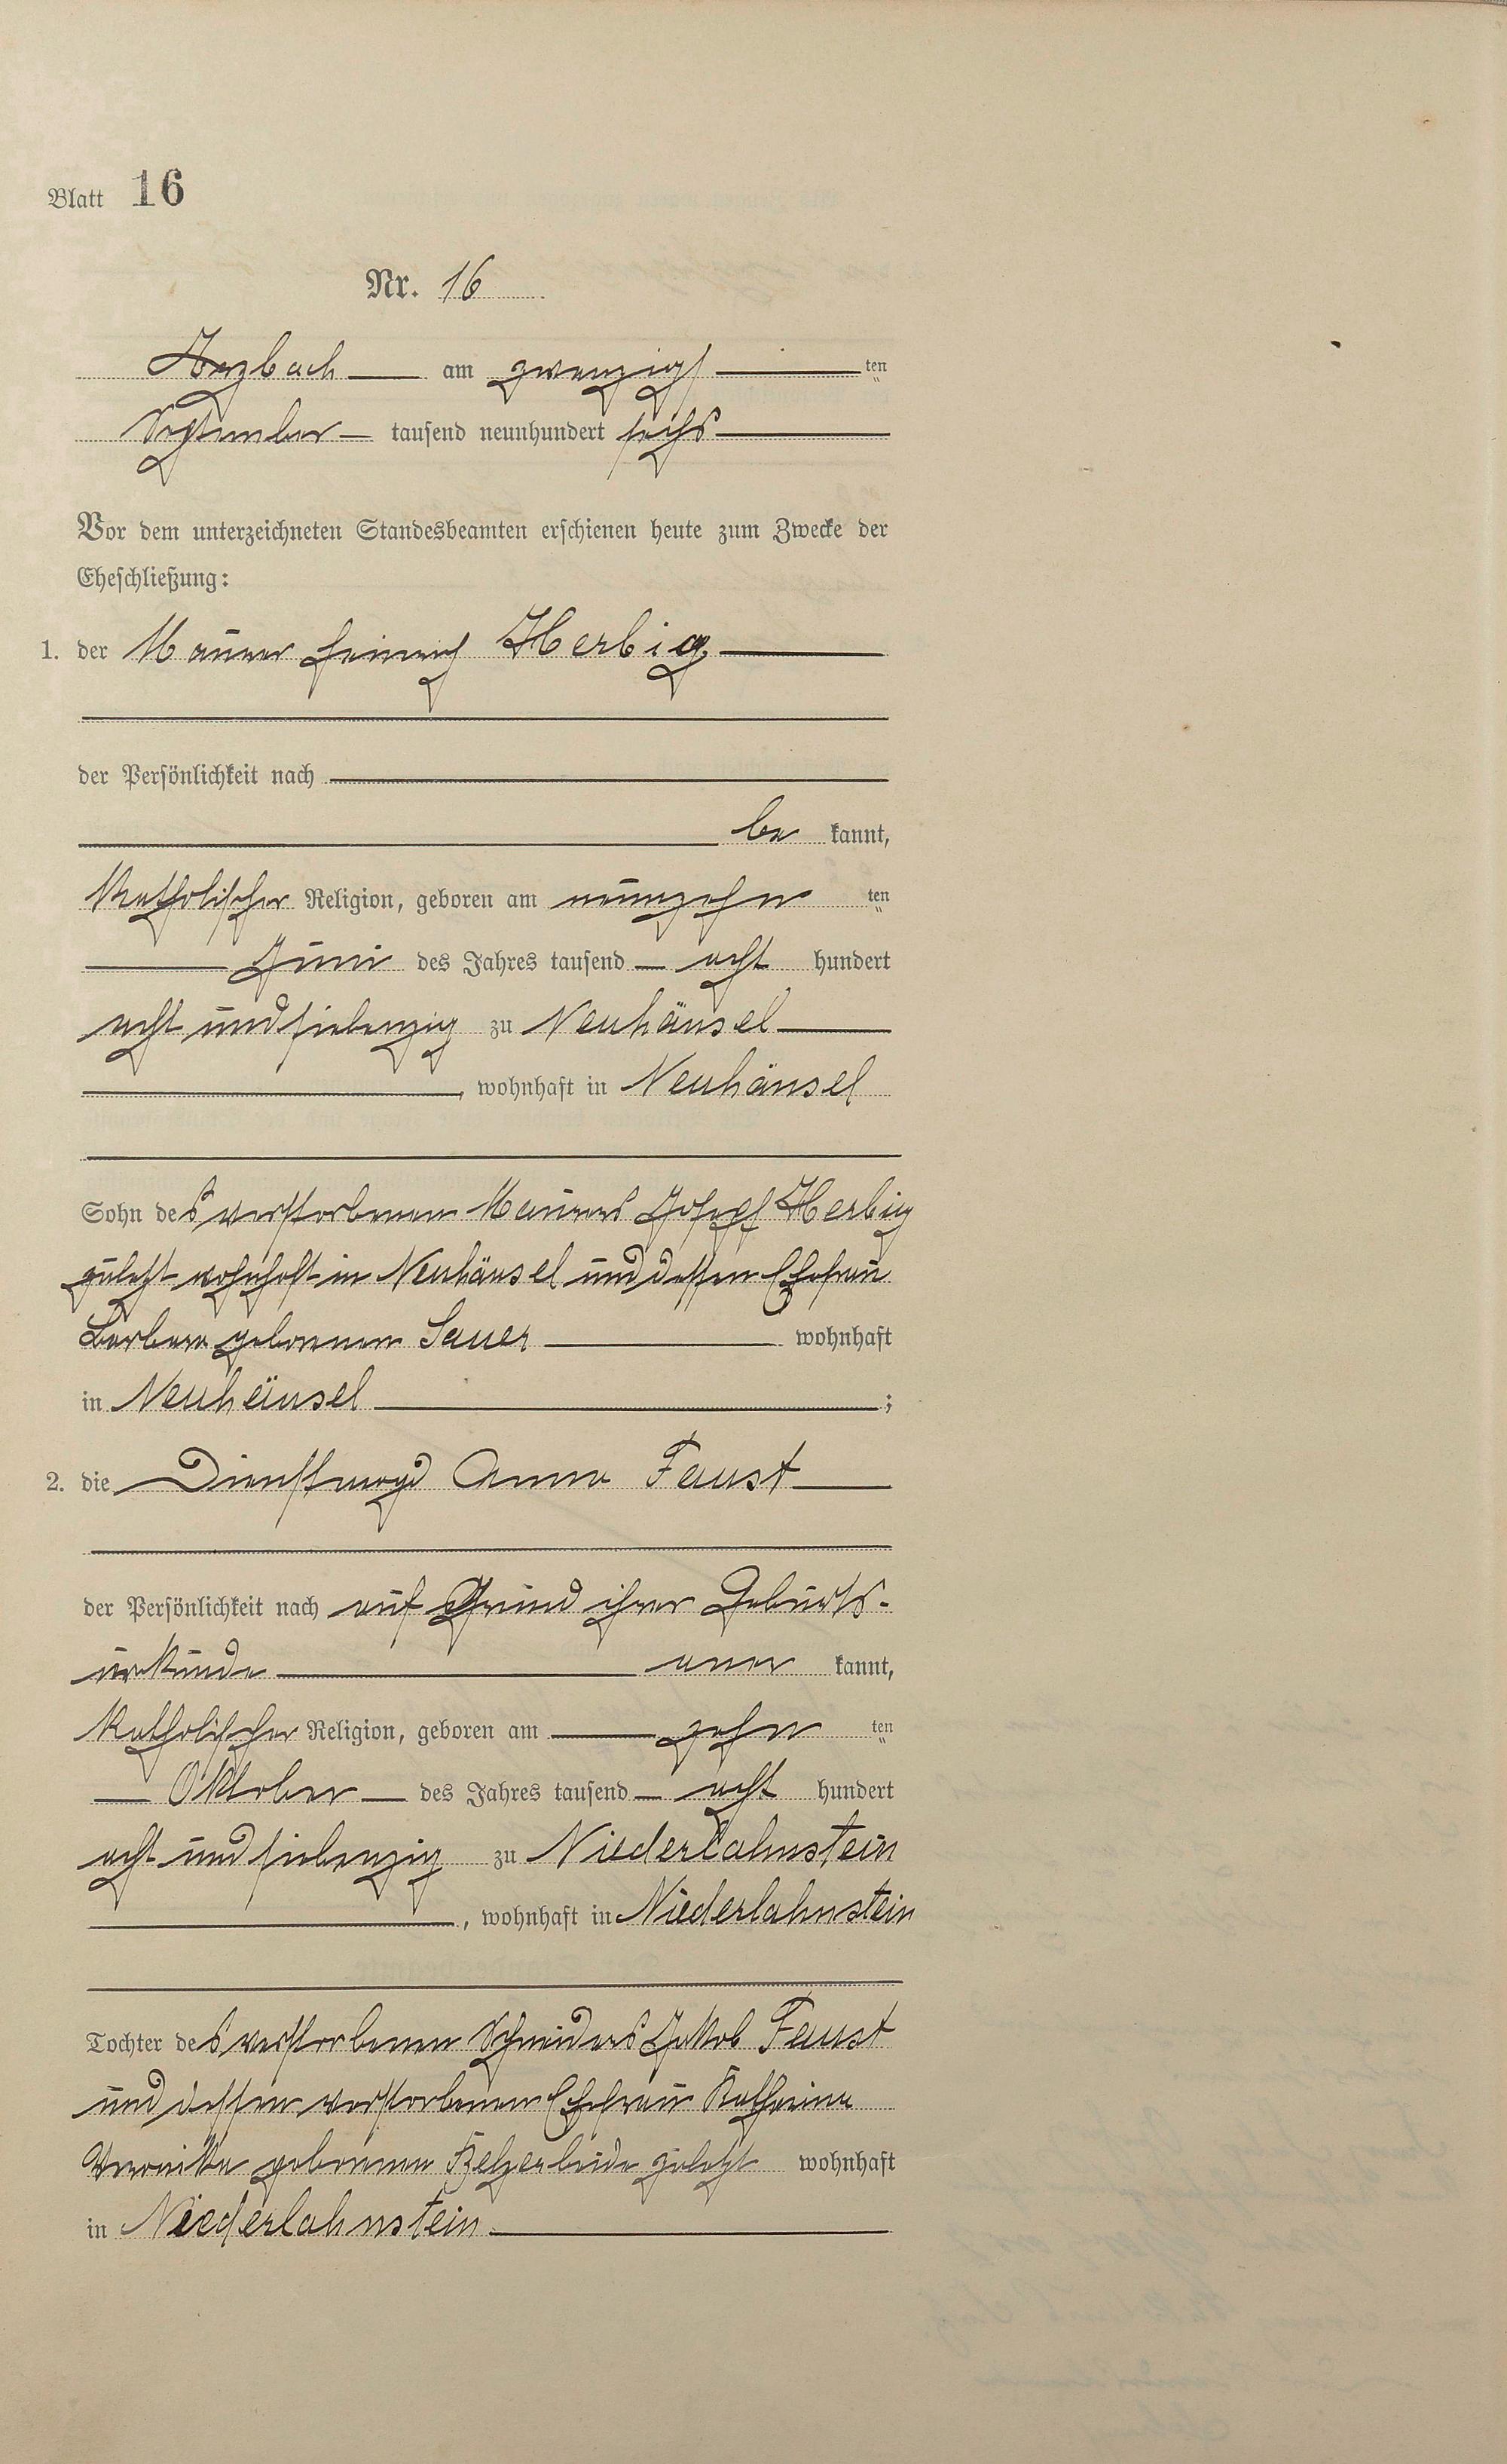 Blatt 16
Nr. 16
Arzbach am zwanzigsten
September tausend neunhundert sechs
Vor dem unterzeichneten Standesbeamten erschienen heute zum Zwecke der
Eheschließung:
1. der Maurer Heinrich Herbig
der Persönlichkeit nach
be kannt,
katholischer Religion, geboren am neunzehn ten
Juni des Jahres tausend acht hundert
acht und siebenzig zu Neuhäusel
, wohnhaft in Neuhäusel
Sohn des verstorbenen Maurers Josef Herbig
zuletzt wohnhaft in Neuhäusel und dessen Ehefrau
Barbara geborenen Sauer wohnhaft
in Neuhäusel ;
2. die Dienstmagd Anna Faust
der Persönlichkeit nach auf Grund ihrer Geburts-
urkunde aner kannt,
katholischer Religion, geboren am zehn ten
Oktober des Jahres tausend acht hundert
acht und siebenzig zu Niederlahnstein
, wohnhaft in Niederlahnstein
Tochter des verstorbenen Schneiders Jakob Faust
und dessen verstorbenen Ehefrau Katharina
Veronika geborenen zuletzt wohnhaft
in Niederlahnstein